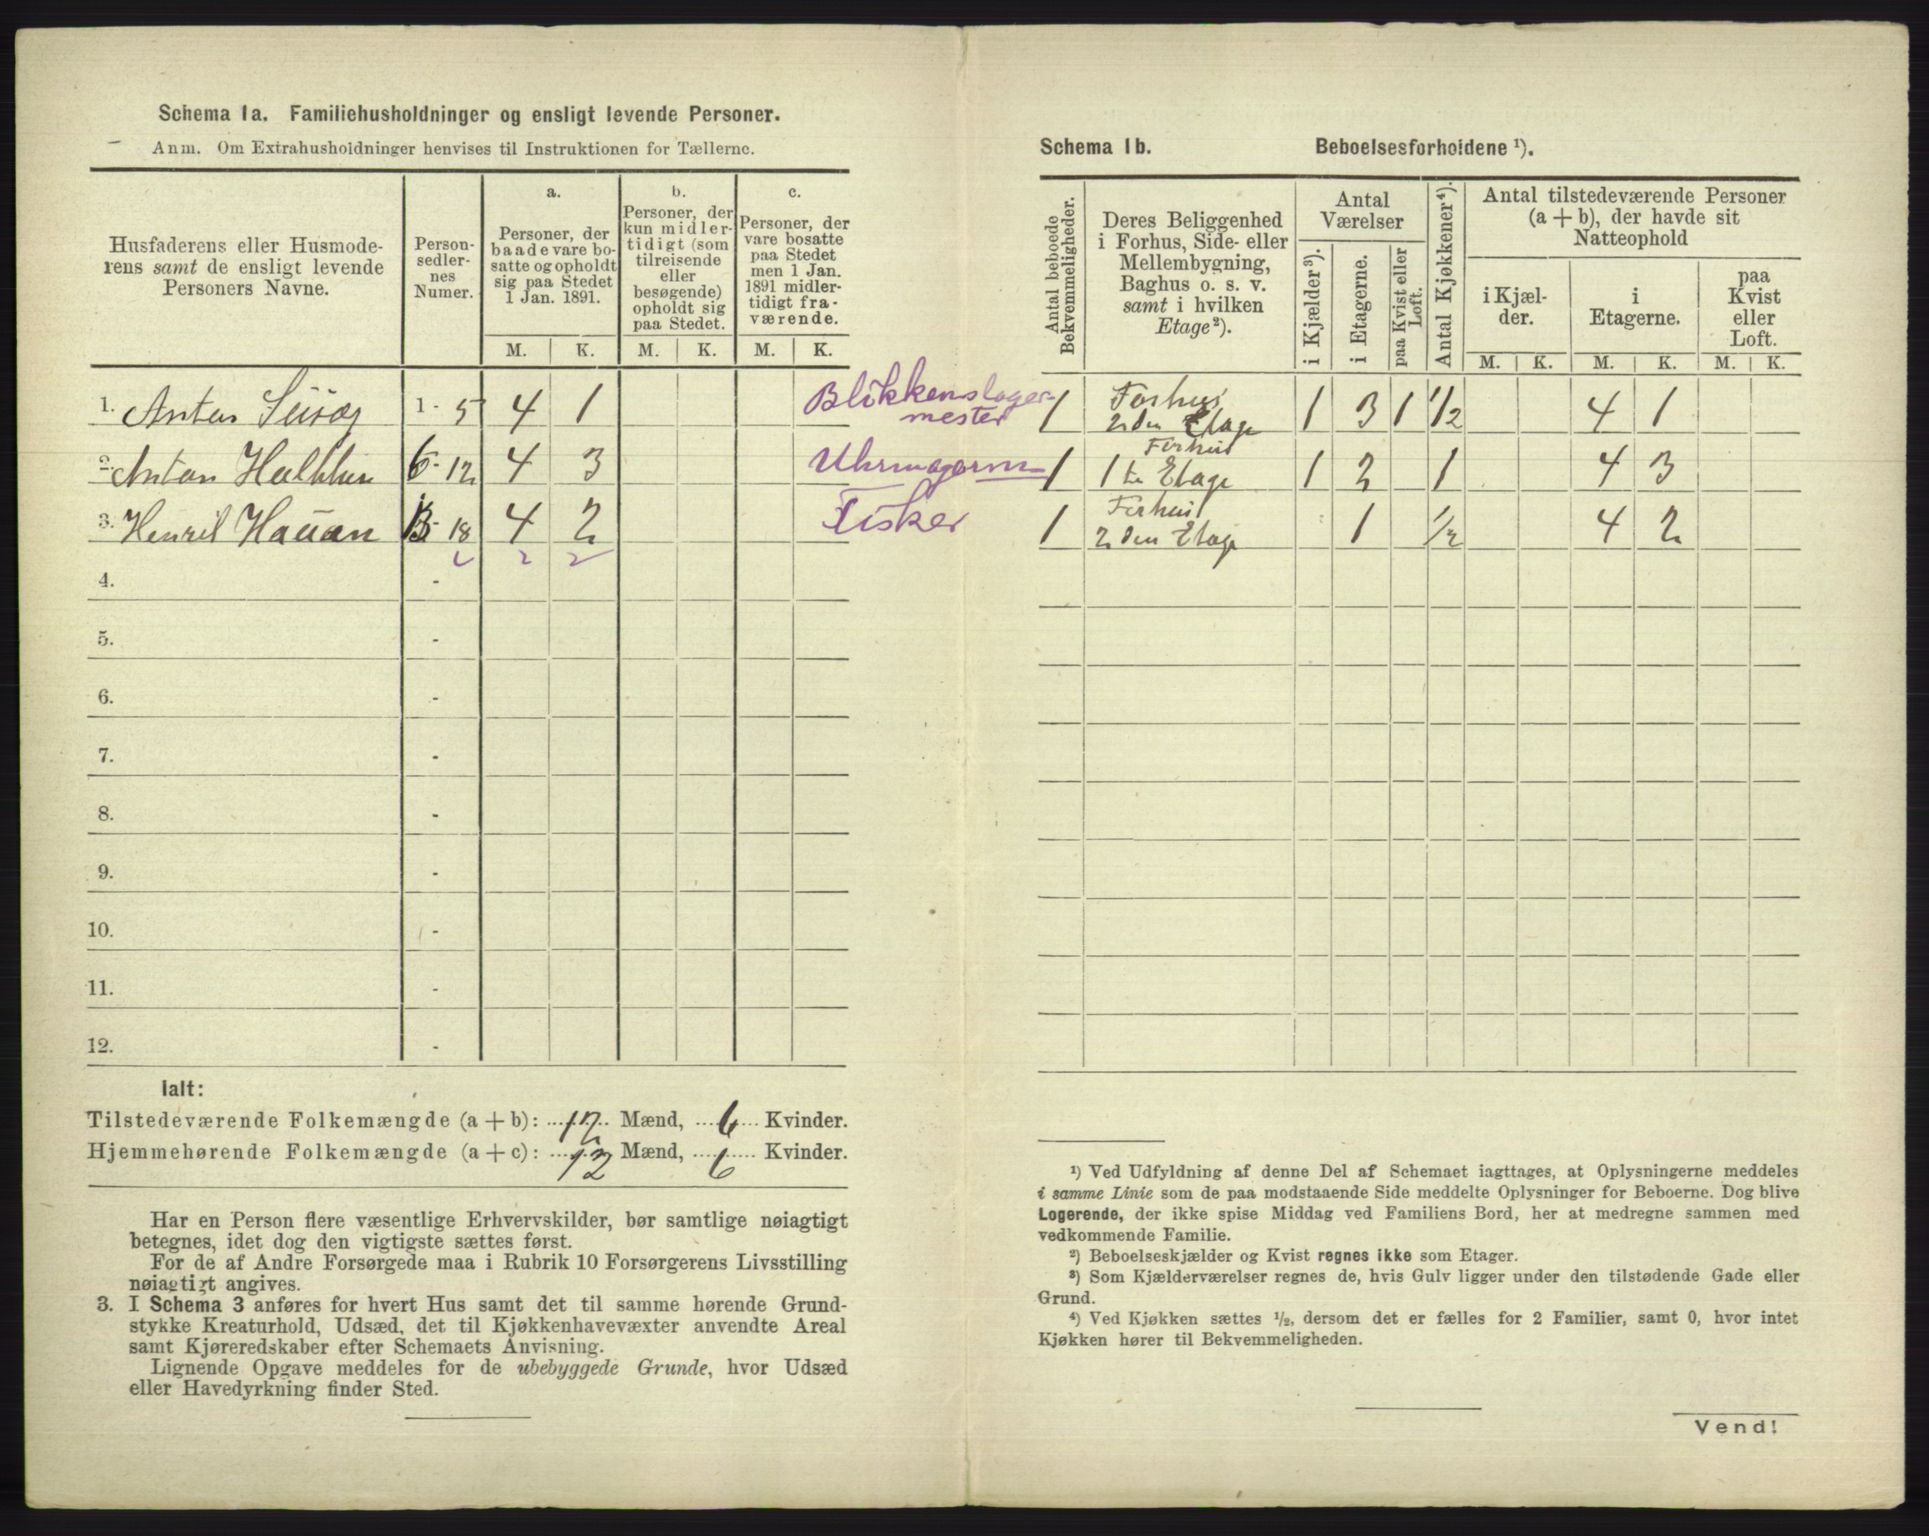 Schema 1a. Familiehusholdninger og ensligt levende Personer.
Anm. Om Extrahusholdninger henvises til Instruktionen for Tællerne.
Husfaderens eller Husmoderens samt de ensligt levende Personers Navne.
Personsedlernes Numer.
a.
Personer, der baade vare bosatte og opholdt sig paa Stedet 1 Jan. 1891.
b.
Personer, der kun midlertidigt (som tilreisende eller besøgende) opholdt sig paa Stedet.
c.
Personer, der vare bosatte paa Stedet men 1 Jan. 1891 midlertidigt fraværende.
M. K. M. K. M. K.
1. Anton 1 - 5 4 1 Blikkenslagermester
2. Anton 6 - 12 4 3 Uhrmagerm
3. Henril Hauan 13 - 18 4 2 Fisker
4. -
5. -
6. -
7. -
8. -
9. -
10. -
11. -
12. -
Ialt:
Tilstedeværende Folkemængde (a + b): 12 Mænd, 6 Kvinder.
Hjemmehørende Folkemængde (a + c): 12 Mænd, 6 Kvinder.
Har en Person flere væsentlige Erhvervskilder, bør samtlige nøiagtigt
betegnes, idet dog den vigtigste sættes først.
For de af Andre Forsørgede maa i Rubrik 10 Forsørgerens Livsstilling
nøiagtigt angives.
3. I Schema 3 anføres for hvert Hus samt det til samme hørende Grund-
stykke Kreaturhold, Udsæd, det til Kjøkkenhavevæxter anvendte Areal
samt Kjøreredskaber efter Schemaets Anvisning.
Lignende Opgave meddeles for de ubebyggede Grunde, hvor Udsæd
eller Havedyrkning finder Sted.
Schema 1b. Beboelsesforholdene ¹).
Antal beboede Bekvemmeligheder.
Deres Beliggenhed i Forhus, Side- eller Mellembygning, Baghus o. s. v. samt i hvilken Etage ²).
Antal Værelser
i Kjælder ³).
i Etagerne.
paa Kvist eller Loft.
Antal Kjøkkener ⁴).
Antal tilstedeværende Personer (a + b), der havde sit Natteophold
i Kjælder.
i Etagerne.
paa Kvist eller Loft.
M. K. M. K. M. K.
1 Forhus 2 den Etage 1 3 1 1/2 4 1
1 Forhus 1 te Etage 1 2 1 4 3
1 Forhus 2 den Etage 1 1/2 4 2
¹) Ved Udfyldning af denne Del af Schemaet iagttages, at Oplysningerne meddeles
i samme Linie som de paa modstaaende Side meddelte Oplysninger for Beboerne. Dog blive
Logerende, der ikke spise Middag ved Familiens Bord, her at medregne sammen med
vedkommende Familie.
²) Beboelseskjælder og Kvist regnes ikke som Etager.
³) Som Kjælderværelser regnes de, hvis Gulv ligger under den tilstødende Gade eller
Grund.
⁴) Ved Kjøkken sættes ½, dersom det er fælles for 2 Familier, samt 0, hvor intet
Kjøkken hører til Bekvemmeligheden.
Vend!